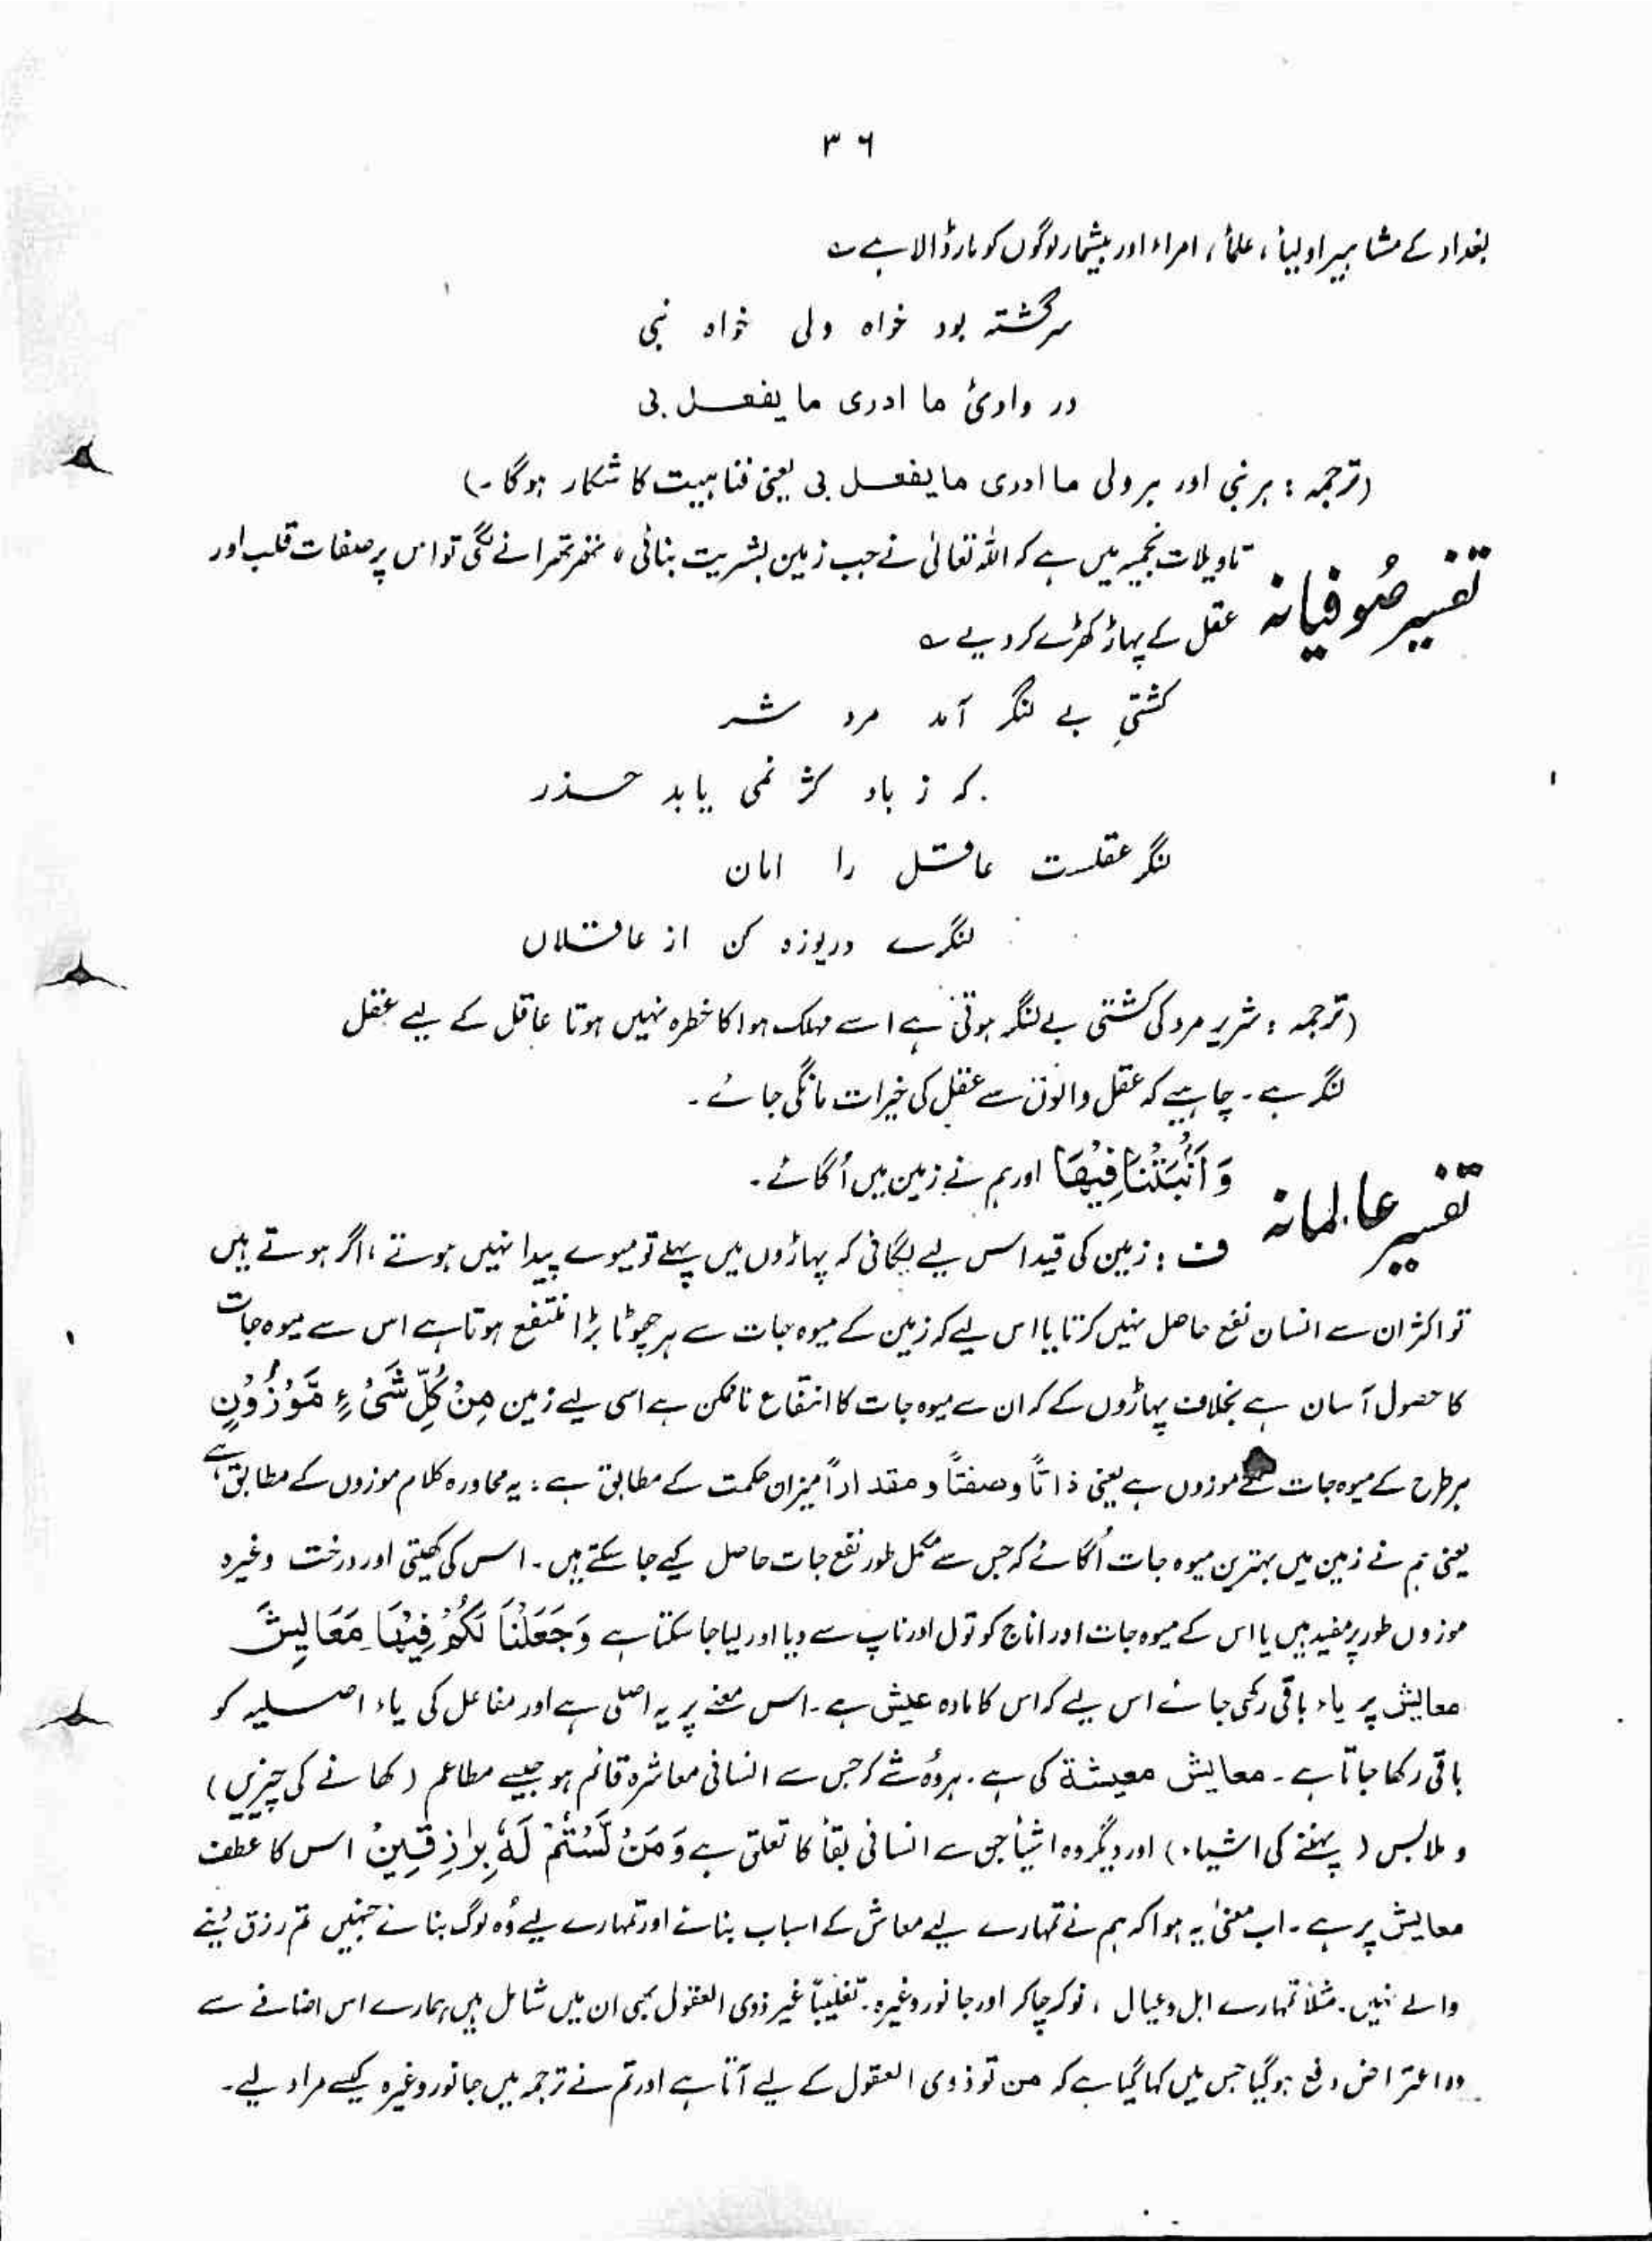 ۳۶
بغداد کے مشاہیر اولیأ، علمأ، امراء اور بیشمار لوگوں کو مار ڈالا ہے ؎
سرگشتہ بود خواہ ولی خواہ نبی
در وادیٔ ما ادری ما یفعل بی
(ترجمہ : ہر نبی اور ہر ولی ما ادری ما یفعل بی یعنی فنا ہیبت کا شکار ہوگا۔)
تفسیر صُوفیانہ تاویلات نجمیہ میں ہے کہ اللہ تعالیٰ نے جب زمین بشریت بنائی، تھرتھرانے لگی تو اس پر صفات قلب اور
عقل کے پہاڑ کھڑے کر دیے ؎
کشتیِ بے لنگر آمد مرد شر
کہ ز باد کژ نمی یابد حذر
لنگر عقلست عاقل را امان
لنگرے دریوزہ کن از عاقلاں
(ترجمہ : شریر مرد کی کشتی بے لنگر ہوتی ہے اسے مہلک ہوا کا خطرہ نہیں ہوتا عاقل کے لیے عقل
لنگر ہے۔ چاہیے کہ عقل والوں سے عقل کی خیرات مانگی جائے۔
تفسیر عالمانہ وَ اَنْۢبَتْنَا فِیْهَا اور ہم نے زمین میں اُگائے۔
ف : زمین کی قید اس لیے لگائی کہ پہاڑوں میں پہلے تو میوے پیدا نہیں ہوتے، اگر ہوتے ہیں
تو اکثر ان سے انسان نفع حاصل نہیں کرتا یا اس لیے کہ زمین کے میوہ جات سے ہر چھوٹا بڑا منتفع ہوتا ہے اس سے میوہ جات
کا حصول آسان ہے بخلاف پہاڑوں کے کہ ان سے میوہ جات کا انتفاع ناممکن ہے اسی لیے زمین مِنْ كُلِّ شَیْءٍ مَّوْزُوْنٍ
ہر طرح کے میوہ جات سے موزوں ہے یعنی ذاتاً و صفتاً و مقداراً میزان حکمت کے مطابق ہے ؛ یہ محاورہ کلام موزوں کے مطابق ہے
یعنی ہم نے زمین میں بہترین میوہ جات اُگائے کہ جس سے مکمل طور نفع جات حاصل کیے جا سکتے ہیں۔ اس کی کھیتی اور درخت وغیرہ
موزوں طور پر مفید ہیں یا اس کے میوہ جات اور اناج کو تول اور ناپ سے دیا اور لیا جا سکتا ہے وَجَعَلْنَا لَكُمْ فِیْهَا مَعَایِشَ
معایش پر یاء باقی رکھی جائے اس لیے کہ اس کا مادہ عیش ہے۔ اس معنے پر یہ اصلی ہے اور مفاعل کی یاء اصلیہ کو
باقی رکھا جاتا ہے۔ معایش معیشۃ کی ہے۔ ہر وُہ شے کہ جس سے انسانی معاشرہ قائم ہو جیسے مطاعم (کھانے کی چیزیں)
و ملابس (پہننے کی اشیاء) اور دیگر وہ اشیأ جس سے انسانی بقأ کا تعلق ہے وَ مَنْ لَّسْتُمْ لَهٗ بِرٰزِقِیْنَ اس کا عطف
معایش پر ہے۔ اب معنیٰ یہ ہوا کہ ہم نے تمہارے لیے معاش کے اسباب بنائے اور تمہارے لیے وُہ لوگ بنائے جنہیں تم رزق دینے
والے نہیں۔ مثلاً تمہارے اہل و عیال ، نوکر چاکر اور جانور وغیرہ۔ تغلیباً غیر ذوی العقول بھی ان میں شامل ہیں ہمارے اس اضافے سے
وہ اعتراض دفع ہو گیا جس میں کہا گیا ہے کہ من تو ذوی العقول کے لیے آتا ہے اور تم نے ترجمہ میں جانور وغیرہ کیسے مراد لیے۔